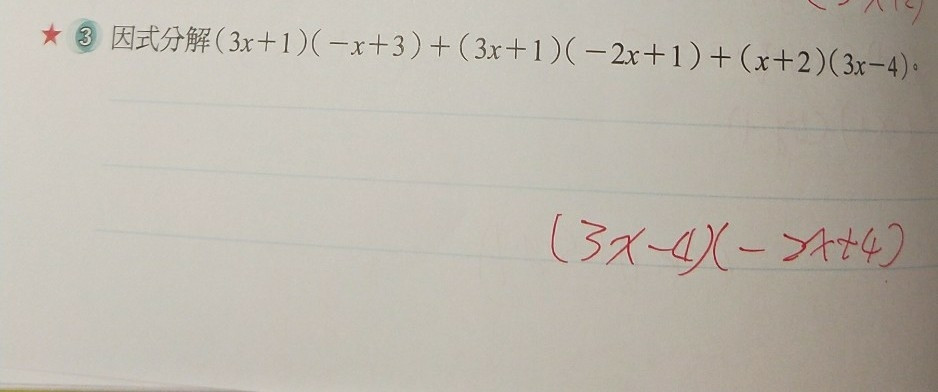 ★ 3 因式分解(3x+1)(-x+3)+(3x+1)(-2x+1)+(x+2)(3x-4)。
(3x-4)(-2x+4)